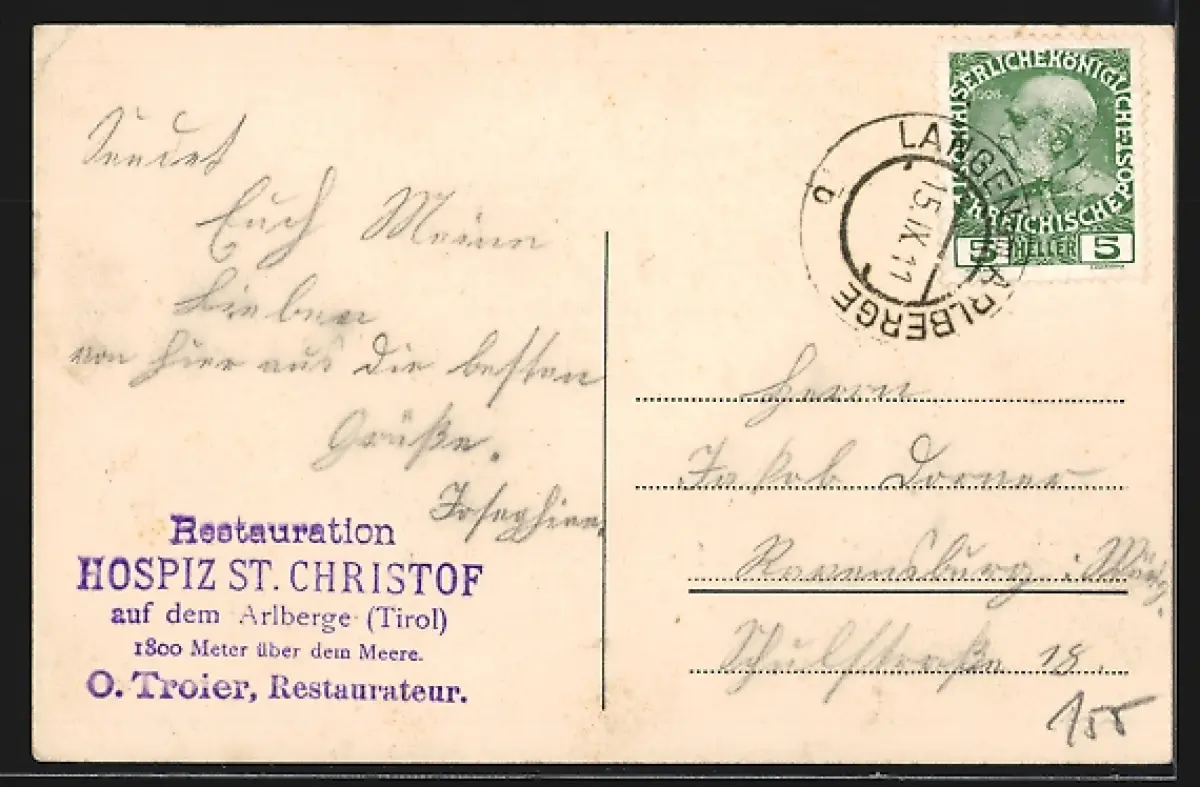 Sendet
Euch Meine
Lieben
von hier aus die besten
Grüße.
Josephine.
Restauration
HOSPIZ ST. CHRISTOF
auf dem Arlberge (Tirol)
1800 Meter über dem Meere.
O. Troier, Restaurateur.
KAISERLICHE KÖNIGLICHE ÖSTERREICHISCHE POST
1908
5 HELLER 5
LANGEN ARLBERGE
15.IX.11
a
Herrn
Jakob Dorner
Ravensburg i.
Schulstraße 18.
155